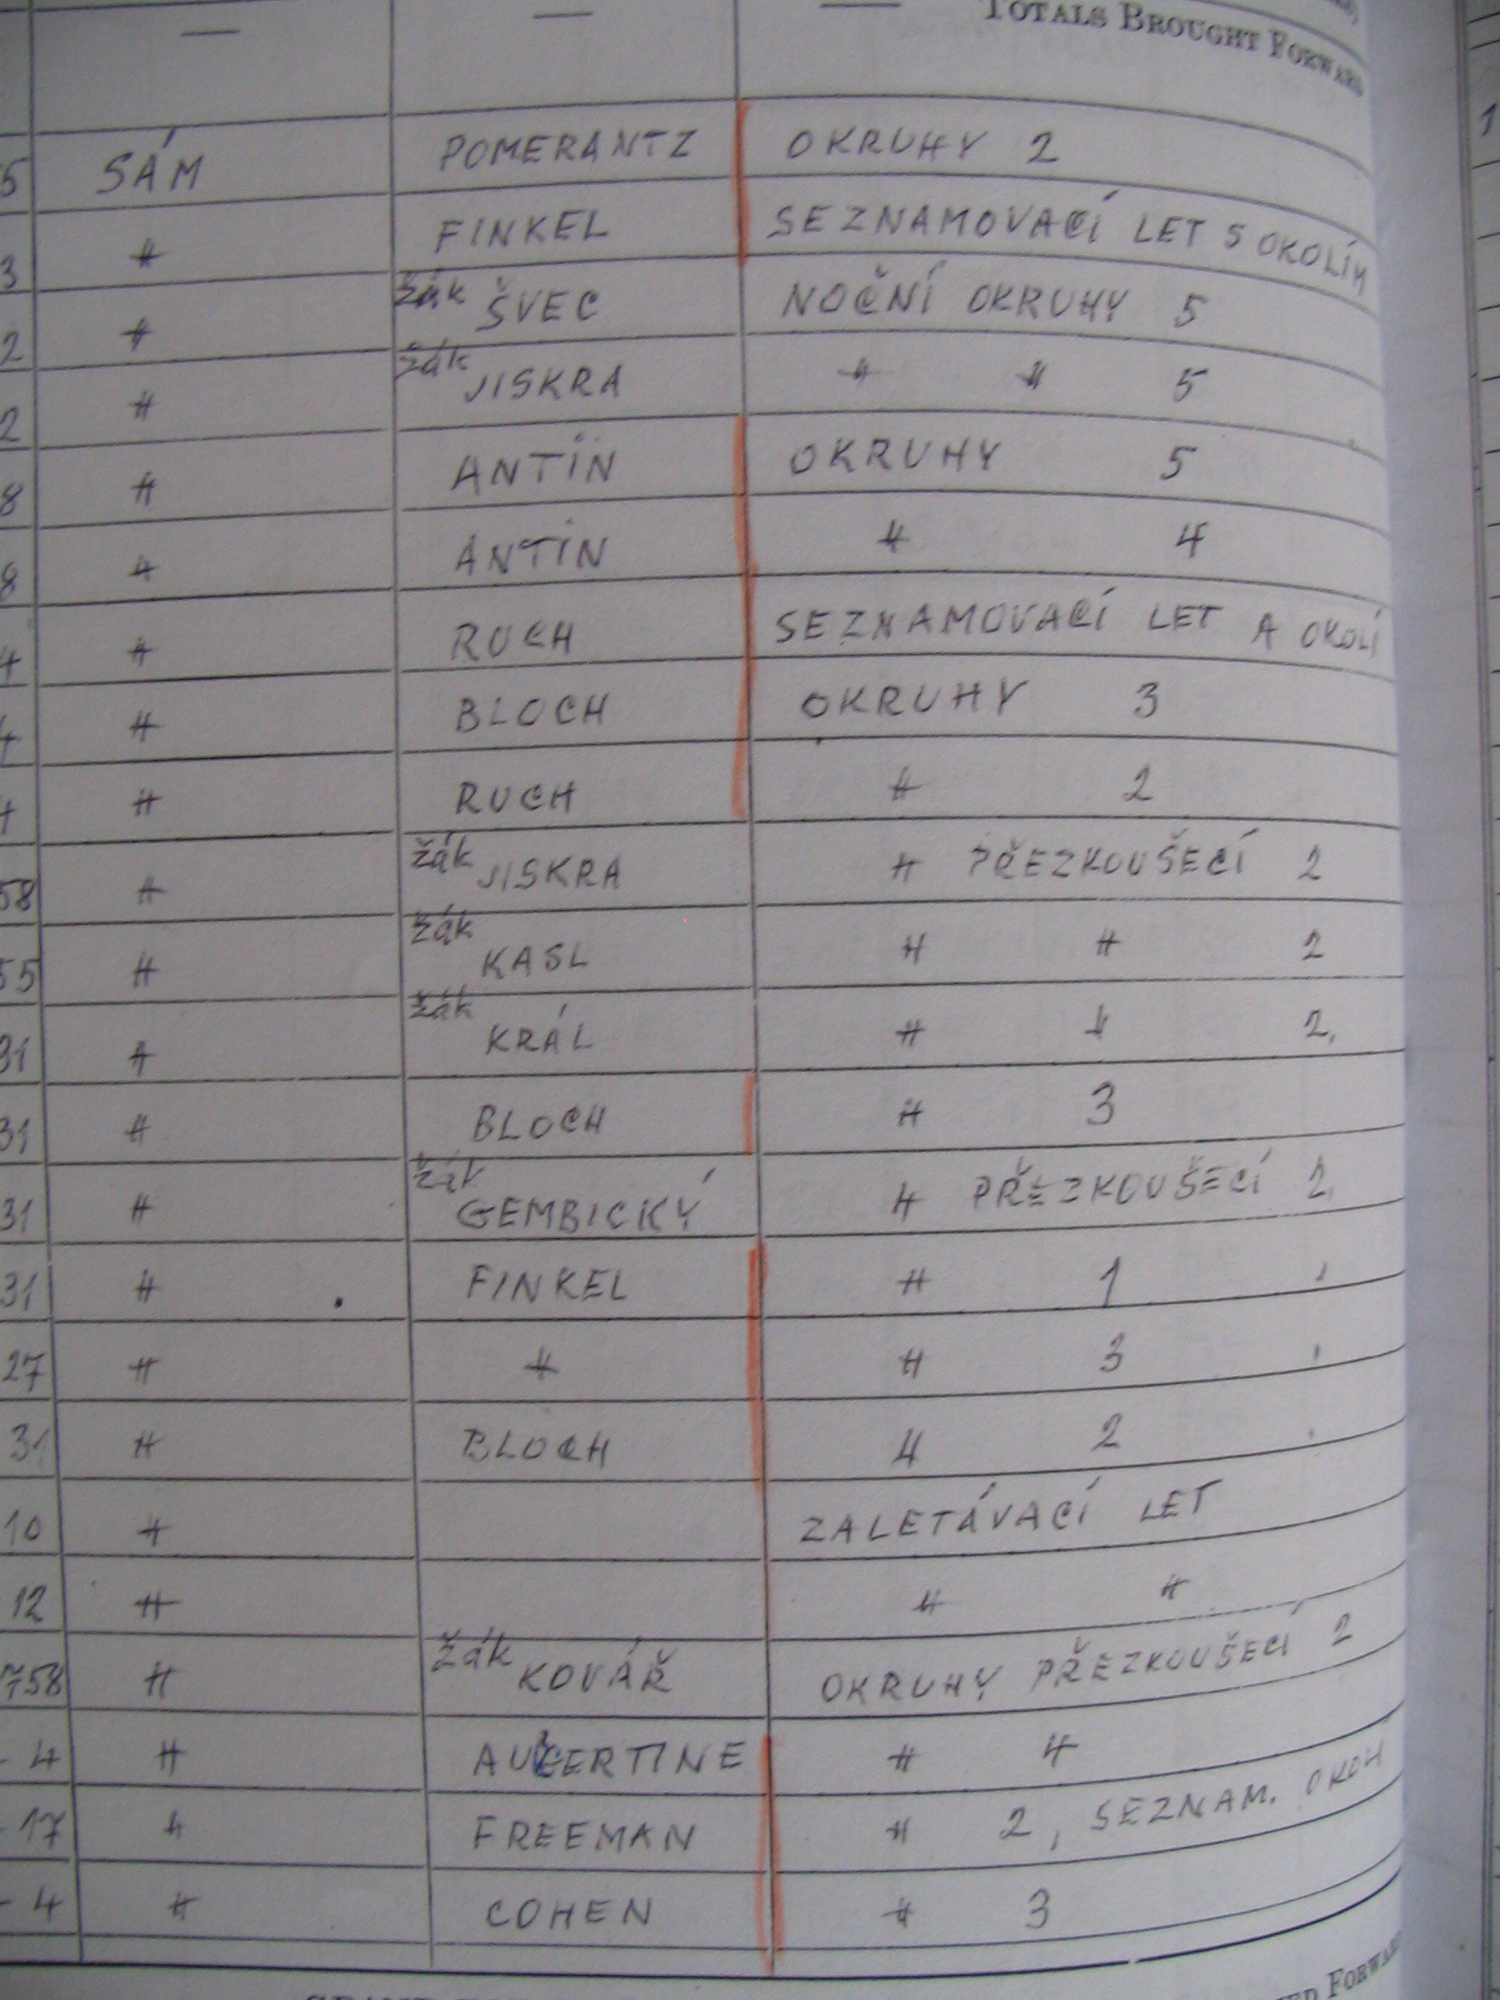 TOTALS BROUGHT FORWARD
5 SÁM POMERANTZ OKRUHY 2
3 〃 FINKEL SEZNAMOVACÍ LET S OKOLÍM
2 〃 žák ŠVEC NOČNÍ OKRUHY 5
2 〃 žák JISKRA 〃 〃 5
8 〃 ANTIN OKRUHY 5
8 〃 ANTIN 〃 4
4 〃 RUCH SEZNAMOVACÍ LET A OKOLÍ
4 〃 BLOCH OKRUHY 3
4 〃 RUCH 〃 2
58 〃 žák JISKRA 〃 PŘEZKOUŠECÍ 2
55 〃 žák KASL 〃 〃 2
31 〃 žák KRÁL 〃 〃 2.
31 〃 BLOCH 〃 3
31 〃 žák GEMBICKÝ 〃 PŘEZKOUŠECÍ 2.
31 〃 FINKEL 〃 1
27 〃 〃 〃 3
31 〃 BLOCH 〃 2
10 〃 ZALETÁVACÍ LET
12 〃 〃 〃
758 〃 žák KOVÁŘ OKRUHY PŘEZKOUŠECÍ 2
- 4 〃 〃 4
- 17 〃 FREEMAN 〃 2, SEZNAM. OKOLÍ
- 4 〃 COHEN 〃 3
FORWARD